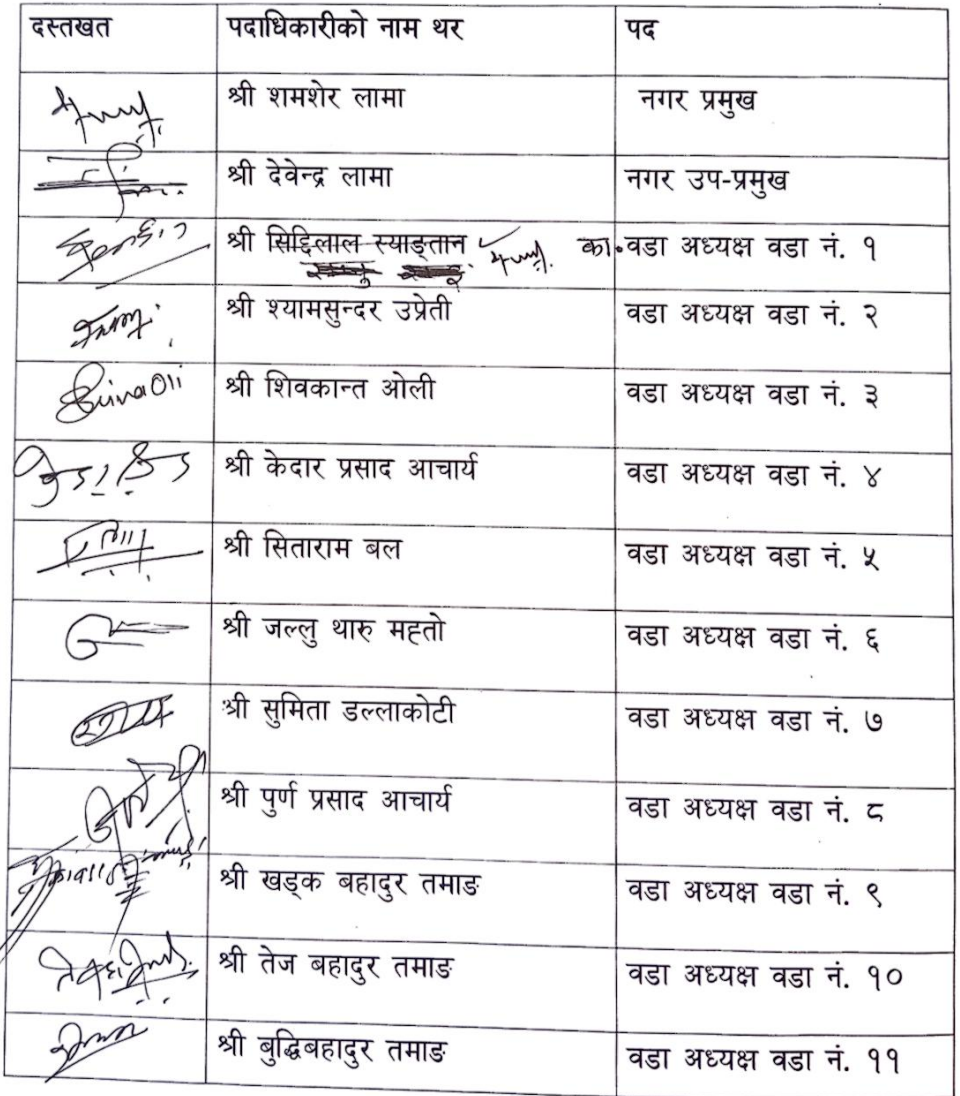 दस्तखत पदाधिकारीको नाम थर पद
श्री शमशेर लामा नगर प्रमुख
श्री देवेन्द्र लामा नगर उप-प्रमुख
श्री सिद्दिलाल स्याङ्तान का. वडा अध्यक्ष वडा नं. १
श्री श्यामसुन्दर उप्रेती वडा अध्यक्ष वडा नं. २
Shiva Oli श्री शिवकान्त ओली वडा अध्यक्ष वडा नं. ३
श्री केदार प्रसाद आचार्य वडा अध्यक्ष वडा नं. ४
श्री सिताराम बल वडा अध्यक्ष वडा नं. ५
श्री जल्लु थारु महतो वडा अध्यक्ष वडा नं. ६
श्री सुमिता डल्लाकोटी वडा अध्यक्ष वडा नं. ७
श्री पुर्ण प्रसाद आचार्य वडा अध्यक्ष वडा नं. ८
श्री खड्क बहादुर तमाङ वडा अध्यक्ष वडा नं. ९
श्री तेज बहादुर तमाङ वडा अध्यक्ष वडा नं. १०
श्री बुद्धिबहादुर तमाङ वडा अध्यक्ष वडा नं. ११